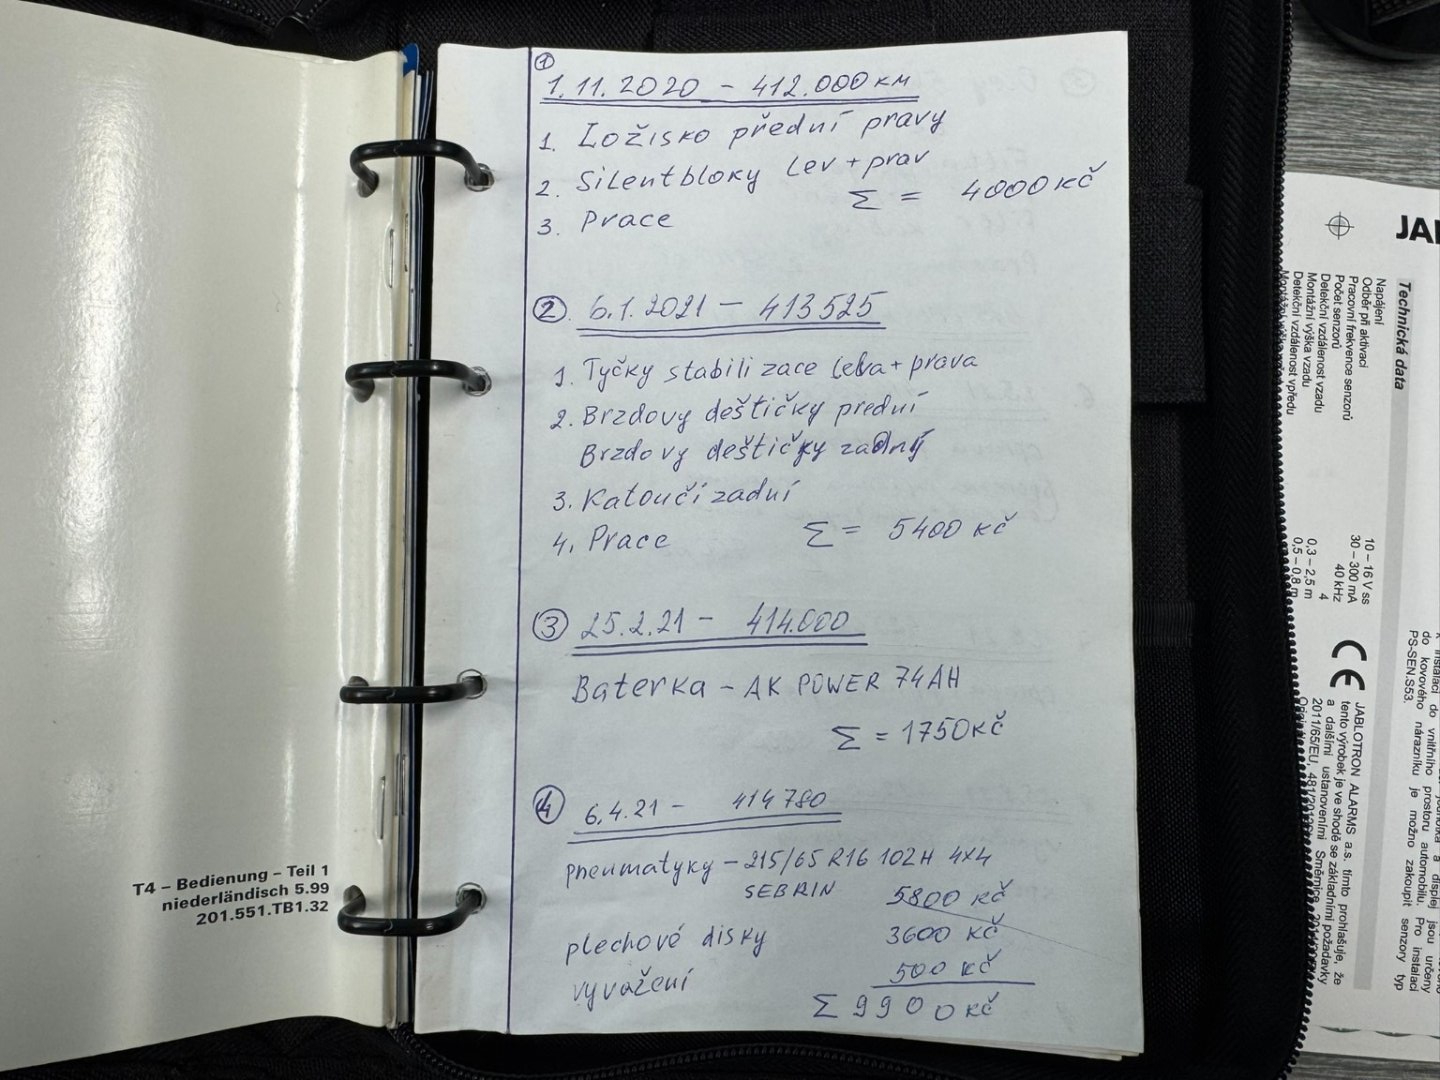 T4 – Bedienung – Teil 1
niederländisch 5.99
201.551.TB1.32
1
1.11.2020 – 412.000 км
1. Ložisko přední pravy
2. Silentbloky lev + prav
Σ = 4000 kč
3. Prace
2. 6.1.2021 – 413525
1. Tyčky stabilizace leva + prava
2. Brzdovy deštičky prední
Brzdovy deštičky zadný
3. Katoučí zadní
4. Prace Σ = 5400 kč
3 25.2.21 – 414.000
Baterka – AK POWER 74AH
Σ = 1750 kč
4 6.4.21 – 414780
pneumatyky – 215/65 R16 102H 4x4
SEBRIN 5800 kč
plechové disky 3600 kč
vyvažení 500 kč
Σ 9900 kč
JAB
Technická data
Napájení 10 – 16 V ss
Odběr při aktivaci 30 – 300 mA
Pracovní frekvence senzorů 40 kHz
Počet senzorů 4
Detekční vzdálenost vzadu 0,3 – 2,5 m
Montážní výška vzadu
Detekční vzdálenost vpředu 0,5 – 0,8 m
CE
JABLOTRON ALARMS a.s. tímto prohlašuje, že
tento výrobek je ve shodě se základními požadavky
a dalšími ustanoveními Směrnice
2011/65/EU,
k instalaci do vnitřního prostoru automobilu. Pro instalaci
do kovového nárazníku je možno zakoupit senzory typ
PS-SEN.S53.